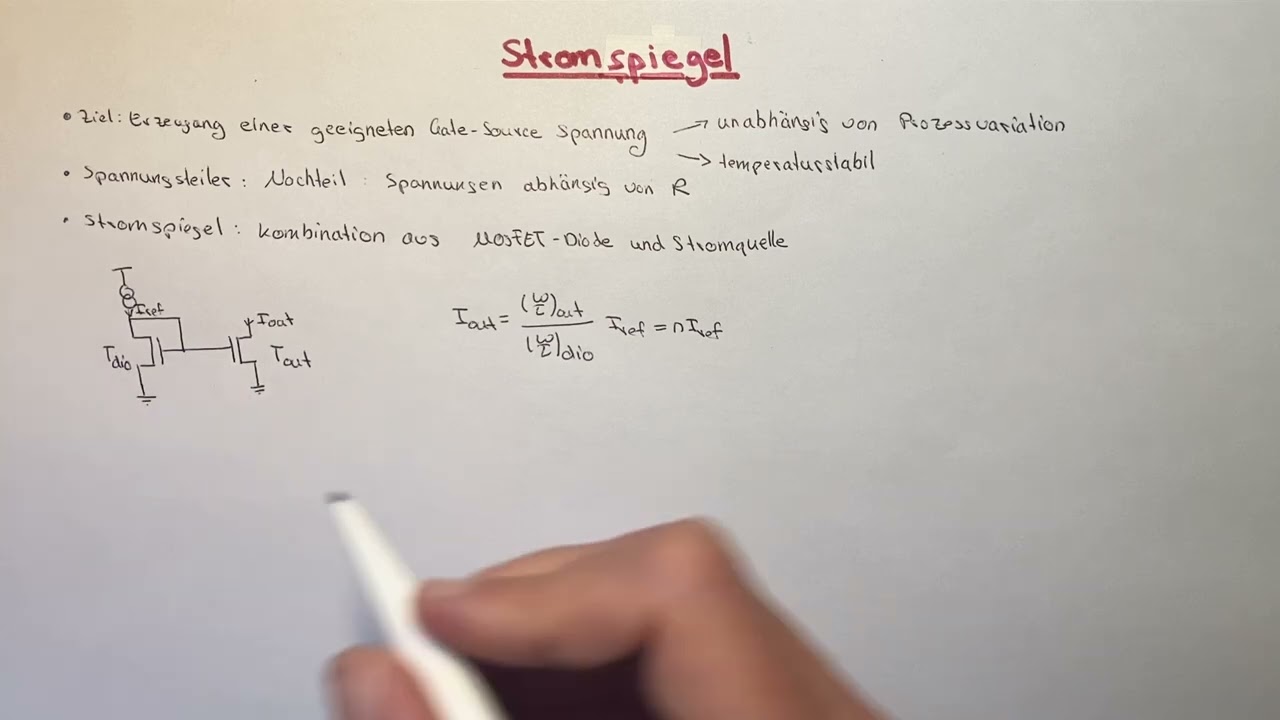 Stromspiegel
• Ziel: Erzeugung einer geeigneten Gate-Source Spannung → unabhängig von Prozessvariation
→ temperaturstabil
• Spannungsteiler: Nachteil: Spannungen abhängig von R
• Stromspiegel: Kombination aus MOSFET-Diode und Stromquelle
Iref
Iout
Tdio
Tout
Iout = (W/L)out / (W/L)dio Iref = n Iref